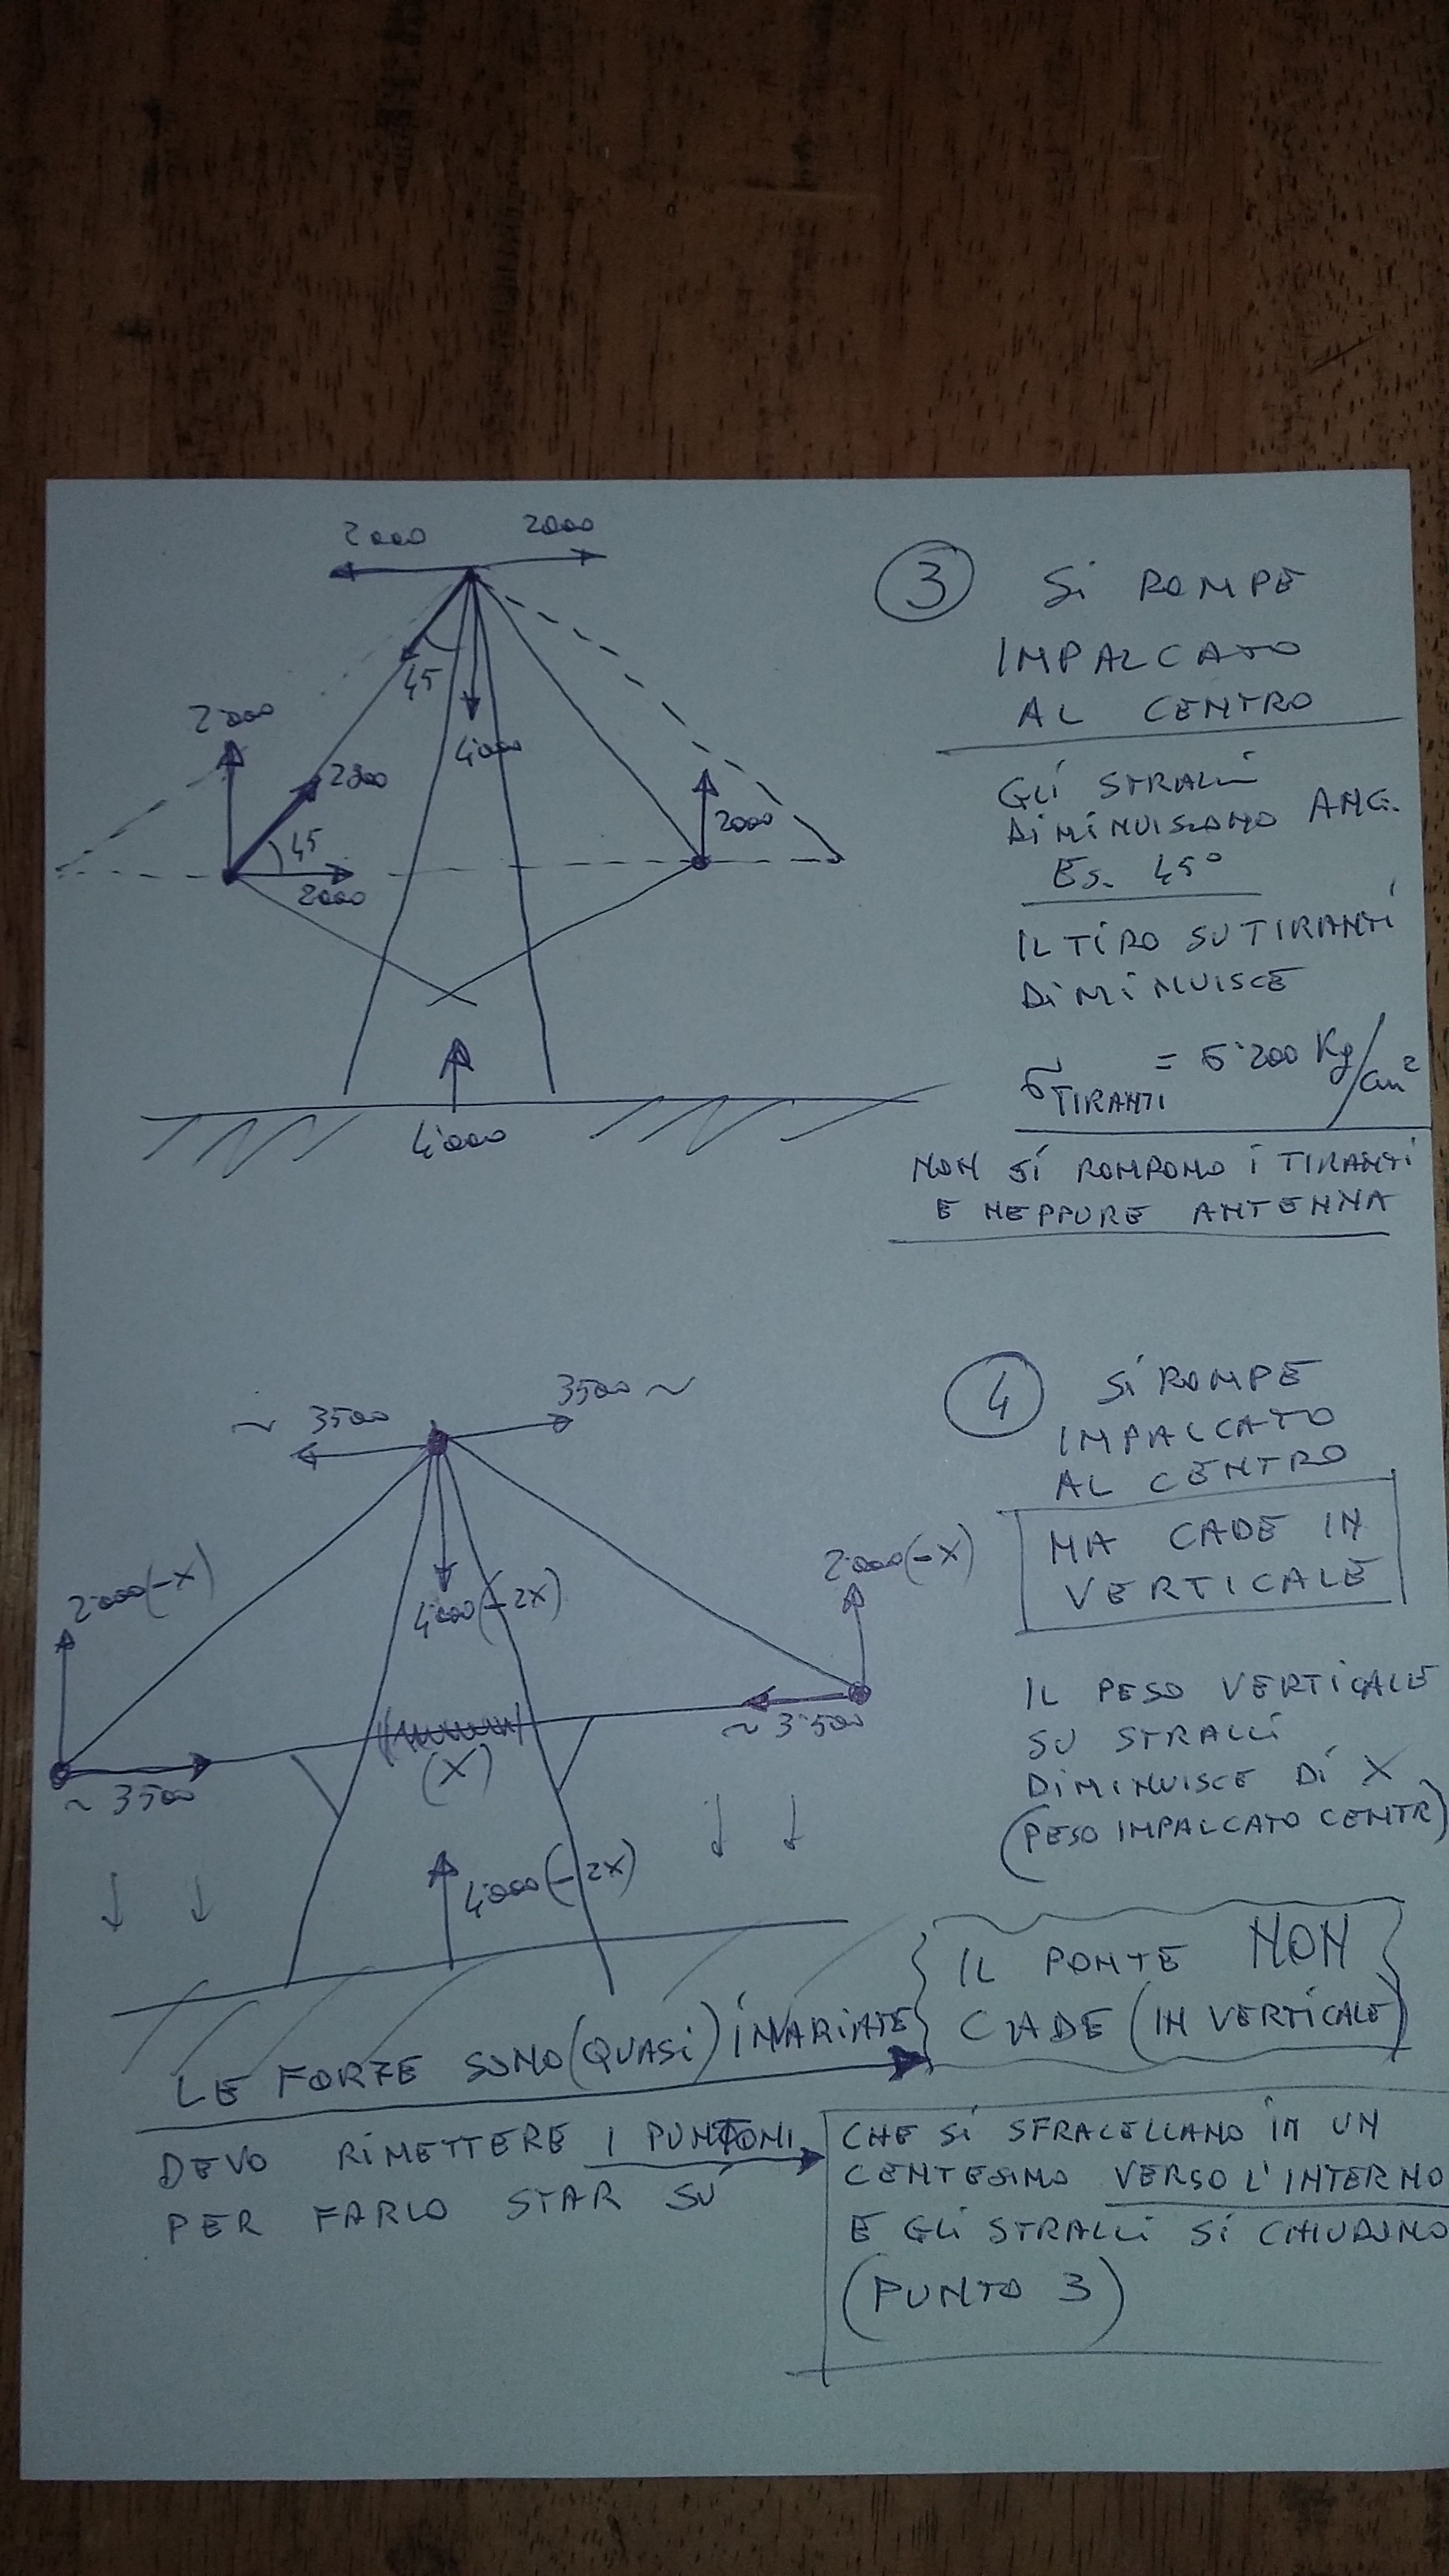 2000 2000
45
4000
2000
2800
45
2000
2000
4000
3 SI ROMPE
IMPALCATO
AL CENTRO
GLI STRALLI
DIMINUISCONO ANG.
ES. 45°
IL TIRO SU TIRANTI
DIMINUISCE
σTIRANTI = 5'200 Kg/cm²
NON SI ROMPONO I TIRANTI
E NEPPURE ANTENNA
~ 3500 3500 ~
2000(-X)
4000(-2X)
2000(-X)
~ 3500
(X)
~ 3'500
4000(-2X)
4 SI ROMPE
IMPALCATO
AL CENTRO
MA CADE IN
VERTICALE
IL PESO VERTICALE
SU STRALLI
DIMINUISCE DI X
(PESO IMPALCATO CENTR)
LE FORZE SONO (QUASI) INVARIATE
IL PONTE NON
CADE (IN VERTICALE)
DEVO RIMETTERE I PUNTONI
PER FARLO STAR SÙ
CHE SI SFRACELLANO IN UN
CENTESIMO VERSO L'INTERNO
E GLI STRALLI SI CHIUDONO
(PUNTO 3)